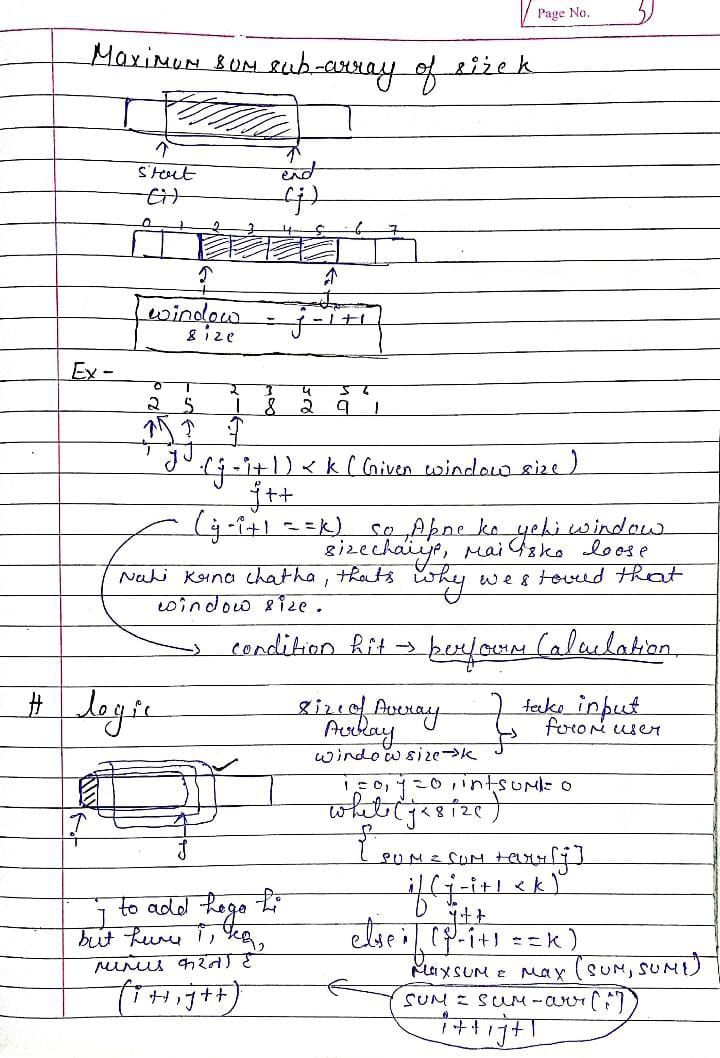 Page No. 3
Maximum sum sub-array of size k
start end
(i) (j)
0 1 2 3 4 5 6 7
i j
window size = j-i+1
Ex -
0 1 2 3 4 5 6
2 5 1 8 2 9 1
i j j j
(j-i+1) < k (Given window size)
j++
(j-i+1 ==k) so, Apne ko yehi window
size chaiye, mai isko loose
Nahi karna chatha, thats why we stored that
window size.
condition hit → perform Calculation.
# logic
size of Array
Array
window size→k
take input
from user
i=0, j=0, int sum1= 0
while(j<size)
{
sum = sum + arr[j]
if(j-i+1 <k)
j++
else if (j-i+1 ==k)
Maxsum = max (sum, sum1)
sum = sum-arr[i]
i++, j+1
i
j
j to add hoga hi
but hume i, ka,
minus करना है
(i++, j++)